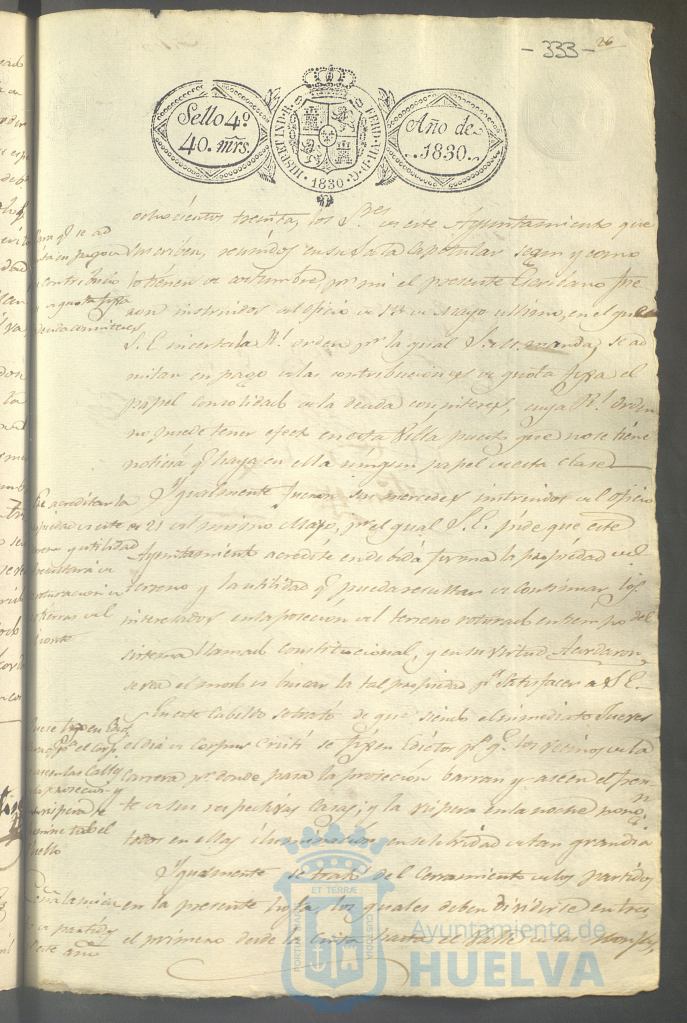 - 333 - 26
Sello 4º
40. mrs.
HISP. ET IND. R. FERD. VII. D. G.
· 1830 ·
Año de
1830.
ochocientos treinta, los S.res de este Ayuntamiento que
suscriben, reunidos en su Sala Capitular segun y como
lo tienen de costumbre, por mi el presente Escribano fue-
ron instruidos del oficio de de Mayo ultimo, en el que
S. E. incerta la R.l orden p.r la qual S. M. manda, se ad
mitan en pago de las contribuciones de quota fixa el
papel consolidado de la deuda con interes, cuya R.l orden
no puede tener efecto en esta Villa puesto que no se tiene
noticia q.e haya en ella ningun papel de esta clase
Ygualmente fueron sus mercedes instruidos del oficio
de 21 del mismo Mayo, p.r el qual S. E. pide que este
Ayuntamiento acredite en debida forma la propiedad del
terreno y la utilidad q.e pueda resultar de continuar los
interesados en la posecion del terreno roturado en tiempo del
sistema llamado Constitucional, y en su virtud Acordaron,
se vea el modo de buscar la tal propiedad p.a satisfacer a S. E.
En este Cabildo se trató de que siendo el inmediato Jueves
el dia de Corpus Cristi se fixen Edictos p.a q.e los vecinos de la
Carrera por donde pasa la prosecion barran y aseen el fren-
te de sus respectivas Casas, y la vispera en la noche pongan
todos en ellas iluminacion en selebridad de tan grandia
Ygualmente se trató del Cerramiento de los partidos
en la presente los quales deben dividirse en tres
el primero desde la hasta el Valle de las
Para q.e se ad
mita en pago de
contribucio
de quota fixa
deuda con interes
acreditar la
propiedad de este
terreno y utilidad
resultará de
roturacion de
tierras del
monte
fixen Edic
p.a el Corpus
aseen las Calles
la prosecion y
vispera
de partidos
este año
ET TERRÆ
PORTUS MARIS
CUSTODIA
Ayuntamiento de
HUELVA